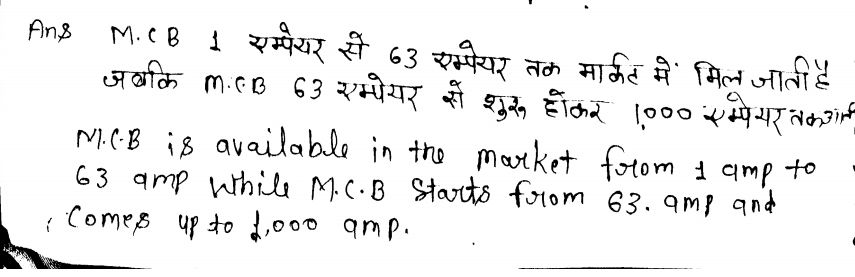 Ans M.C B 1 एम्पेयर से 63 एम्पेयर तक मार्कट में मिल जाती है
जबकि M.C.B 63 एम्पेयर से शुरू होकर 1,000 एम्पेयर तक
M.C.B is available in the market from 1 amp to
63 amp while M.C.B starts from 63. amp and
Comes up to 1,000 amp.